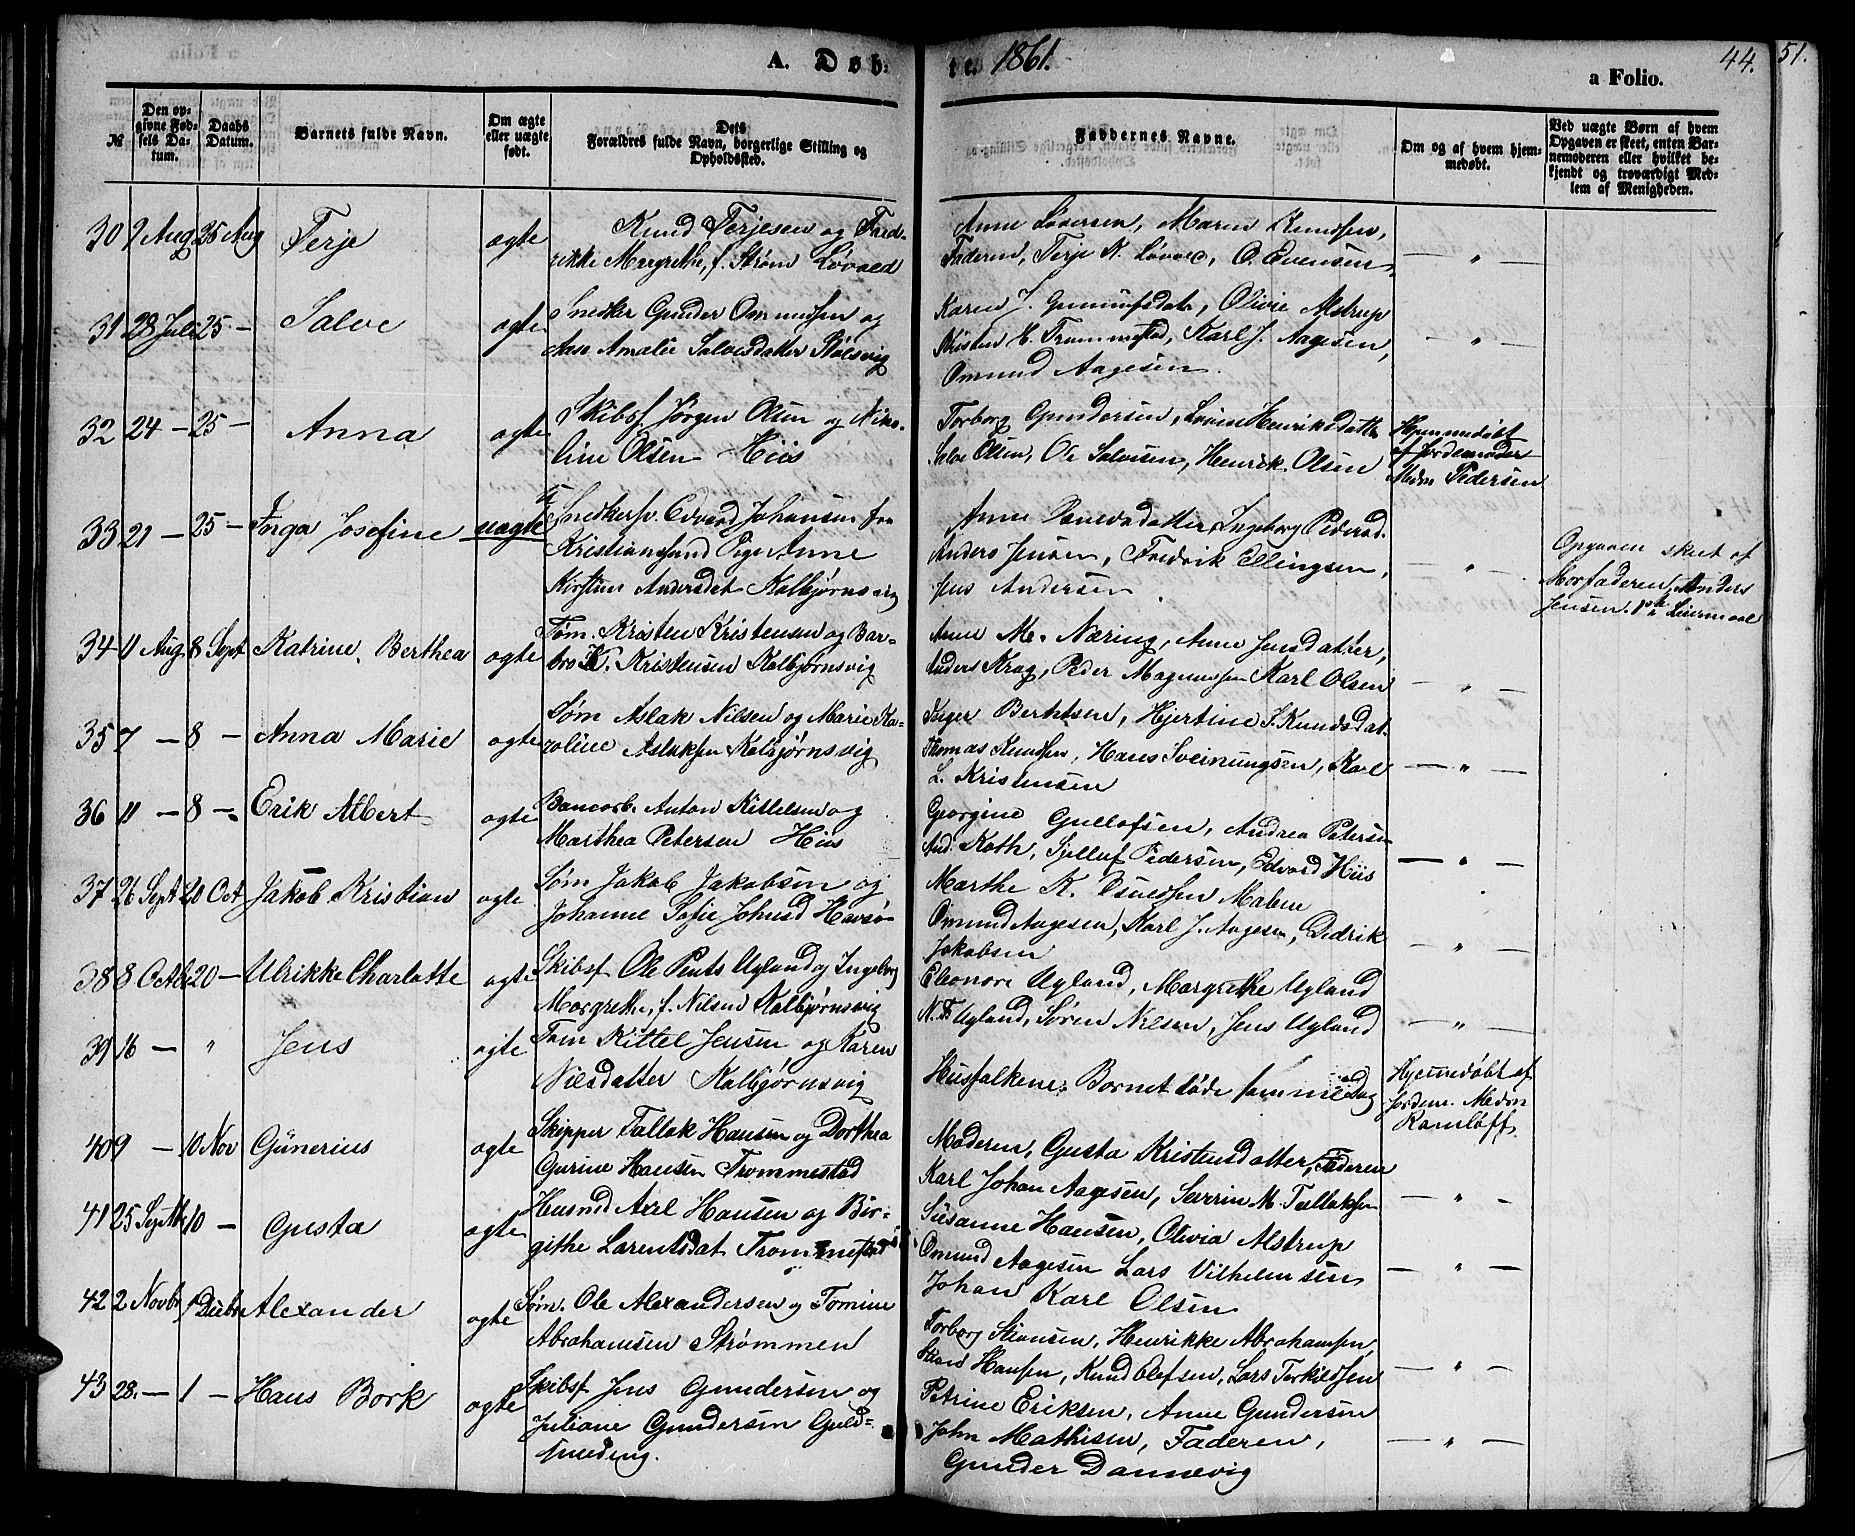 A. Døb-
te. 1861.
44.
51.
a Folio.
№
Den op-
givne Fød-
sels Da-
tum.
Daabs
Datum.
Barnets fulde Navn.
Om ægte
eller uægte
født.
Dets
Forældres fulde Navn, borgerlige Stilling og
Opholdssted.
Faddernes Navne.
Om og af hvem hjem-
medøbt.
Ved uægte Børn af hvem
Opgaven er skeet, enten Bar-
nemoderen eller hvilket be-
kjendt og troværdigt Med-
lem af Menigheden.
30 2 Aug 25 Aug Terje ægte Knud Terjesen og Fred-
rikke Margrethe, f. Strøm Løvold
Anne Sørensen, Maren Knudsen,
Faderen, Terje K. Løvold, O. Evensen — " —
31 28 Juli 25 — Salve ægte Snedker Gunder Omundsen og
Aase Amalie Salvesdatter Stølsvig
Karen J. Gunulfsdat, Olivie Alstrup
Kristen H. Trommestad, Karl J. Aagesen, — " —
Omund Aagesen.
32 24 — 25 — Anna ægte Skibsf. Jørgen Olsen og Niko-
line Olsen Hiis
Torborg Gundersen, Lovise Henriksdatter
Salve Olsen, Ole Salvesen, Henrik Olsen
Hjemmedøbt
af Jordemoder
Mdm Pedersen
33 21 — 25 — Inga Josefine uægte Snedkersv. Edvard Johansen fra
Kristianssund Pige Anne
Kirstine Andersdat Kalbjørnsvig
Anne Danielsdatter, Ingeborg Pedersd.
Anders Jensen, Fredrik Ellingsen, — " —
Jens Andersen.
Opgaven skeet af
Morfaderen, Anders
Jensen. 1ste Leiermaal
34 11 Aug 8 Sept Katrine Berthea ægte Tøm. Kristen Kristensen og Bar-
bro K. Kristensen Kalbjørnsvig
Anne M. Næring, Anne Jensdatter,
Anders Krog, Peder Magnussen Karl Olsen — " —
35 7 — 8 — Anna Marie ægte Søm Aslak Nilsen og Marie Ka-
roline Aslaksen Kalbjørnsvig
Inger Berntsen, Hjertine S. Knudsdat.
Thomas Knudsen, Hans Sveinungsen, Karl — " —
L. Kristensen
36 11 — 8 — Erik Albert ægte Anton Kittelsen og
Marthea Petersen Hiis
Georgine Gullofsen, Andrea Petersen
And. Koth, Sjelluf Pedersen, Edvard Hiis — " —
37 26 Sept 20 Oct Jakob Kristian ægte Søm Jakob Jakobsen og
Johanne Sofie Johnsd Havsø
Marthe K. Osuldsen Malene
Omund Aagesen, Karl J. Aagesen, Didrik
Jakobsen — " —
38 8 Octb 20 — Ulrikke Charlotte ægte Skibsf Ole Pents Ugland og Ingeborg
Margrethe, f. Nilsen Kalbjørnsvig
Eleonore Ugland, Margrethe Ugland
N. T. Ugland, Søren Nilsen, Jens Ugland — " —
39 16 — " Jens ægte Tøm Kittel Jensen og Karen
Nilsdatter Kalbjørnsvig
Husfolkene. Barnet døde samme Dag
Hjemmedøbt af
Jordem. Mdm
Ramløff.
40 9 — 10 Nov Gunerius ægte Skipper Tallak Hansen og Dorthea
Gurine Hansen Trommestad
Moderen, Gusta Kristensdatter, Faderen
Karl Johan Aagesen, Severin M. Tallaksen — " —
41 25 Septbr 10 — Gusta ægte Husmd Axel Hansen og Bir-
githe Larentsdat Trommestad
Susanne Hansen, Olivia Alstrup
Omund Aagesen Lars Vilhelmsen — " —
Johan Karl Olsen
42 2 Novbr 1 Decbr Alexander ægte Søm. Ole Alexandersen og Tomine
Abrahamsen Strømmen
Torborg Stiansen, Henrikke Abrahamsen,
Hansen, Knud Olefsen, Lars Terkildsen — " —
43 28. — 1 — Hans Bork ægte Skibsf Jens Gundersen og
Juliane Gundersen Guld-
smeding.
Petrine Eriksen, Anne Gundersen
John Mathisen, Faderen, — " —
Gunder Dannevig